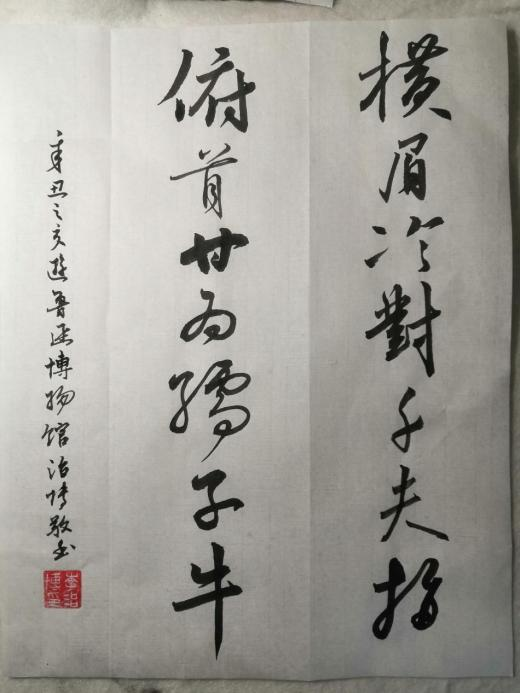 横眉冷對千夫指
俯首甘为孺子牛
辛丑之亥遊魯迅博物馆治博敬书